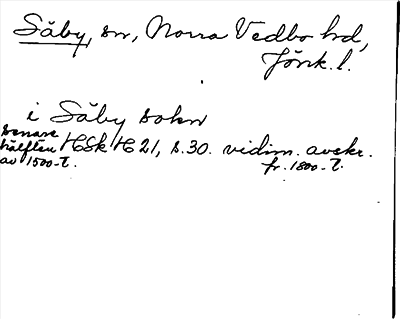 Säby, sn, Norra Vedbo hd,
Jönk. l.
i Säby sokn
senare hälften av 1500-t. HSk H 21, s. 30. vidim. avskr. fr. 1800-t.